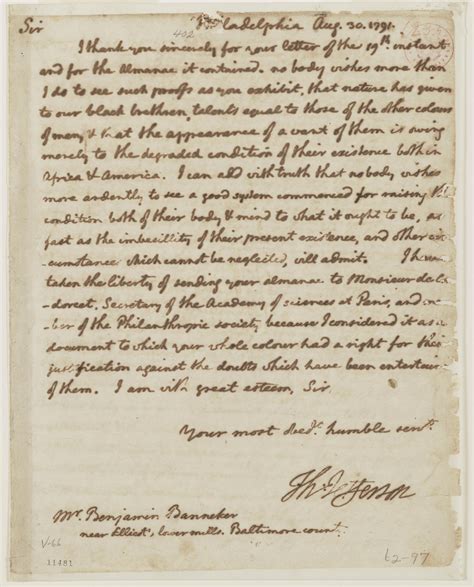 Sir Philadelphia Aug. 30. 1791.
402
I thank you sincerely for your letter of the 19th. instant
and for the Almanac it contained. no body wishes more than
I do to see such proofs as you exhibit, that nature has given
to our black brethren, talents equal to those of the other colours
of men, & that the appearance of a want of them is owing
merely to the degraded condition of their existence both in
Africa & America. I can add with truth that no body wishes
more ardently to see a good system commenced for raising the
condition both of their body & mind to what it ought to be, as
fast as the imbecillity of their present existence, and other cir-
cumstance which cannot be neglected, will admit. I have
taken the liberty of sending your almanac to Monsieur de Con-
dorcet, Secretary of the Academy of sciences at Paris, and mem-
ber of the Philanthropic society, because I considered it as a
document to which your whole colour had a right for their
justification against the doubts which have been entertained
of them. I am with great esteem, Sir,
Your most obedt. humble servt.
Th: Jefferson
Mr. Benjamin Banneker
near Ellicot's, lower mills. Baltimore county.
V-66
11481
62-97